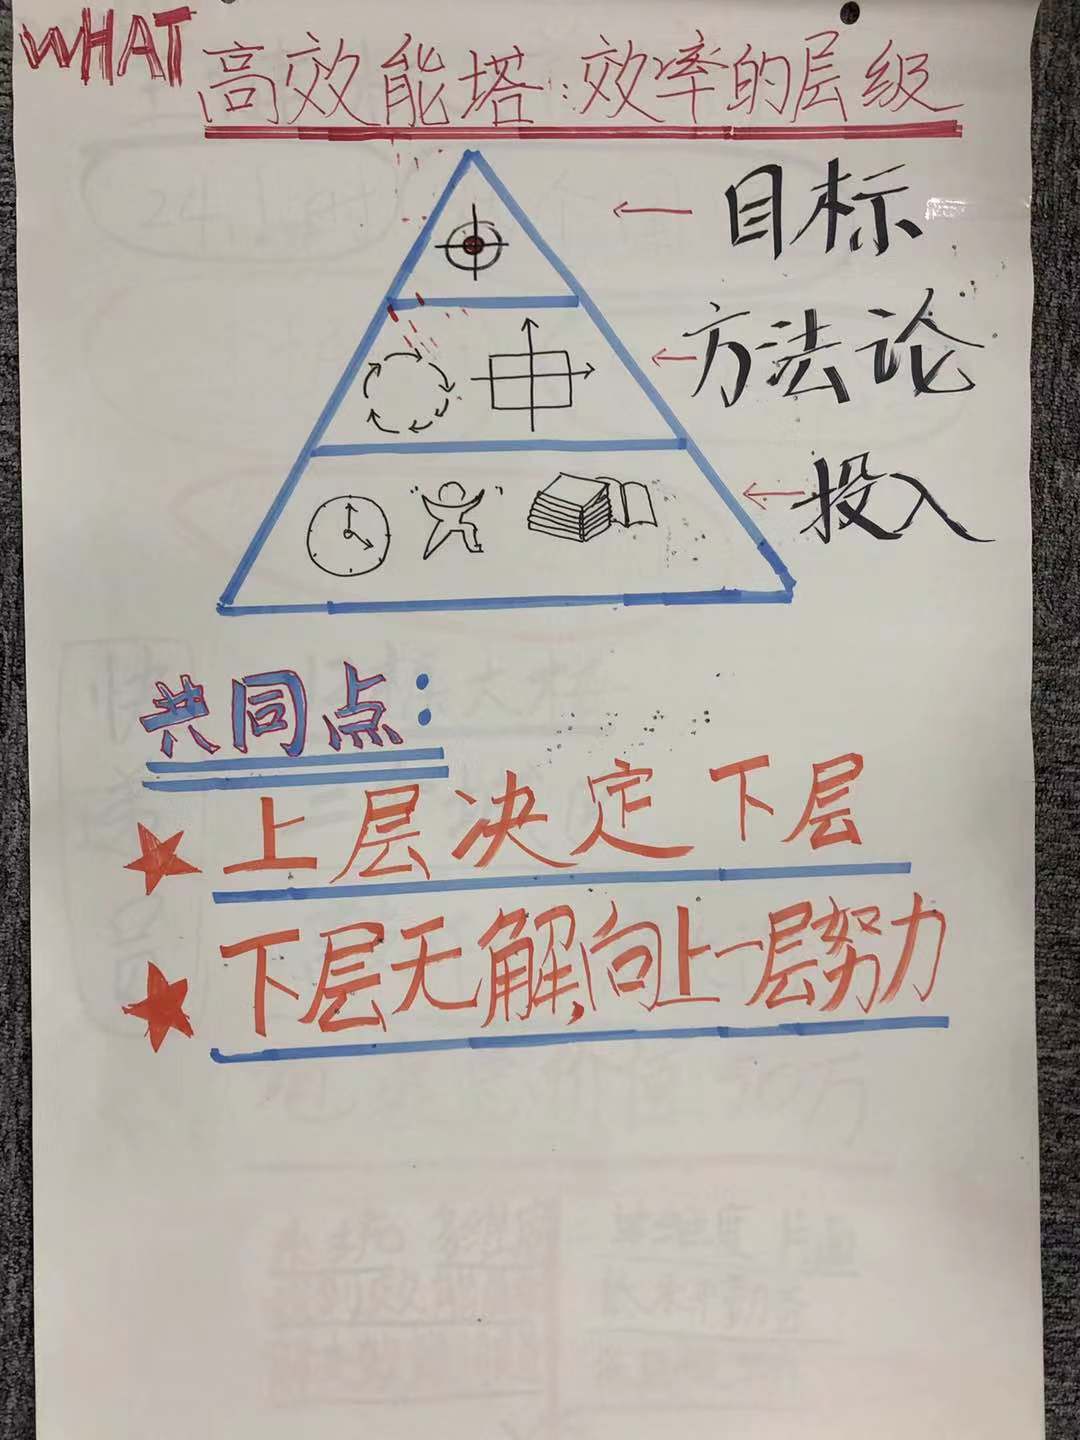 WHAT
高效能塔:效率的层级
目标
方法论
投入
共同点:
上层决定下层
下层无解,向上一层努力